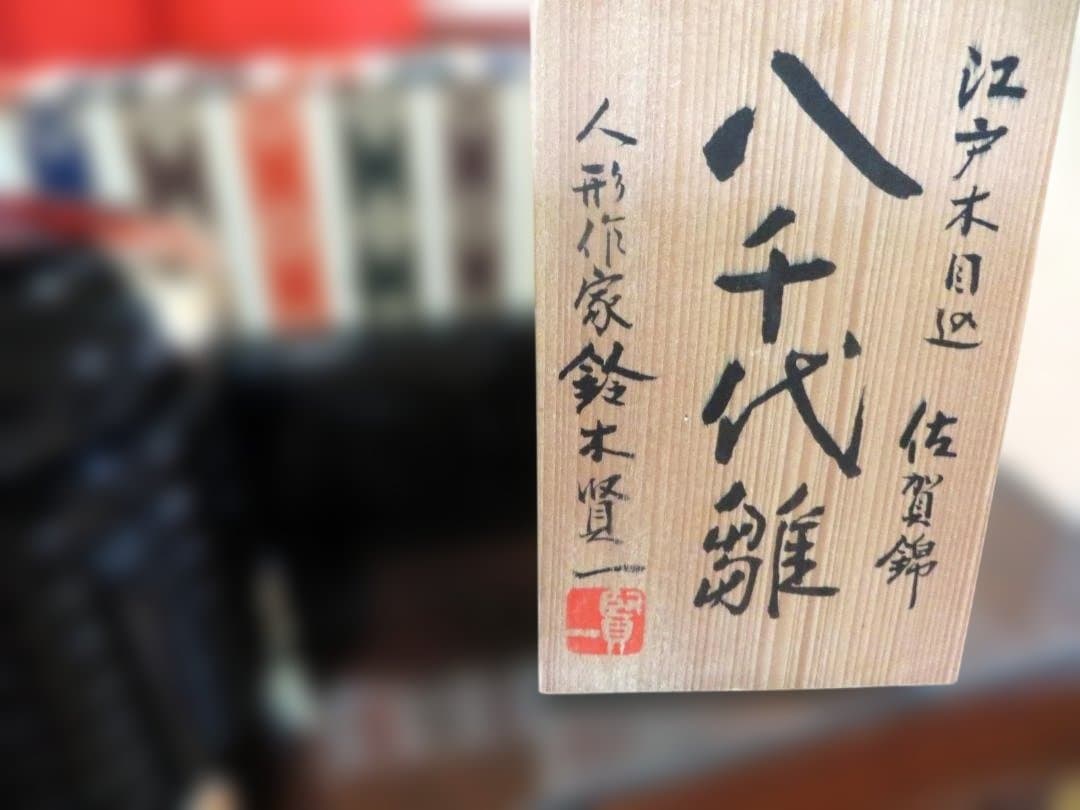 江戸木目込 佐賀錦
八千代雛
人形作家鈴木賢一
賢一